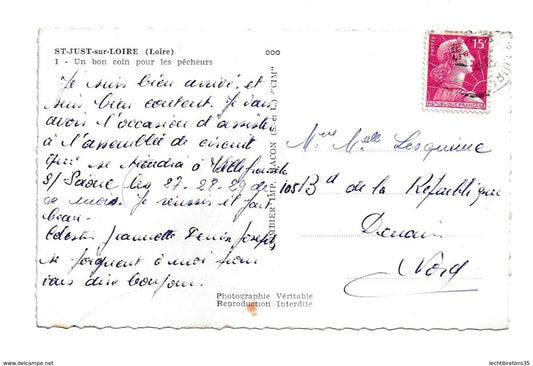 ST-JUST-sur-LOIRE (Loire)
1 - Un bon coin pour les pêcheurs
Je suis bien arrivé et
suis bien content. Je vais
avoir l'occasion d'assister
à l'assemblée de circuit
qui se tiendra à Villefranche
s/ Saône les 27-28-29 de
ce mois. Je réussis il fait
beau.
Célestin Jeannette Denis Joseph
se joignent à moi pour
vous dire bonjour.
COMBIER IMP. MACON (S.-et-L.) "CIM"
15F
REPUBLIQUE FRANÇAISE
Mme Melle Lesquenne
105 Bd de la République
Denain
Nord
Photographie Véritable
Reproduction Interdite
https://www.lechtibretons35